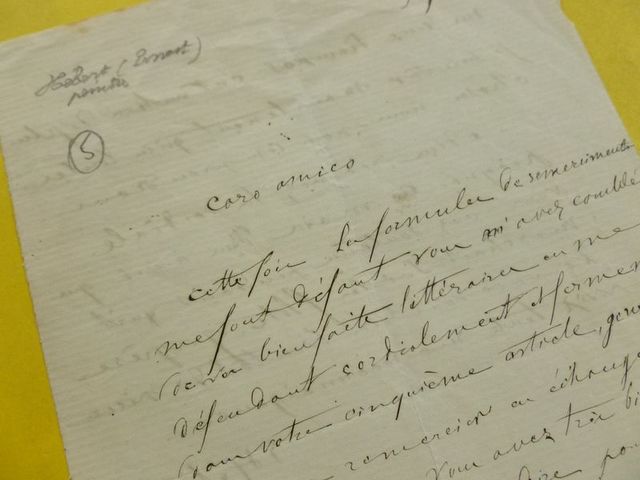 Hébert (Ernest)
peintre
5
caro amico
cette fois les formules de remerciments
me font défaut vous m'avez comblé
de vos bienfaits littéraires en me
défendant cordialement et fermem
dans votre cinquième article, 
remercier en échange
vous avez très bi